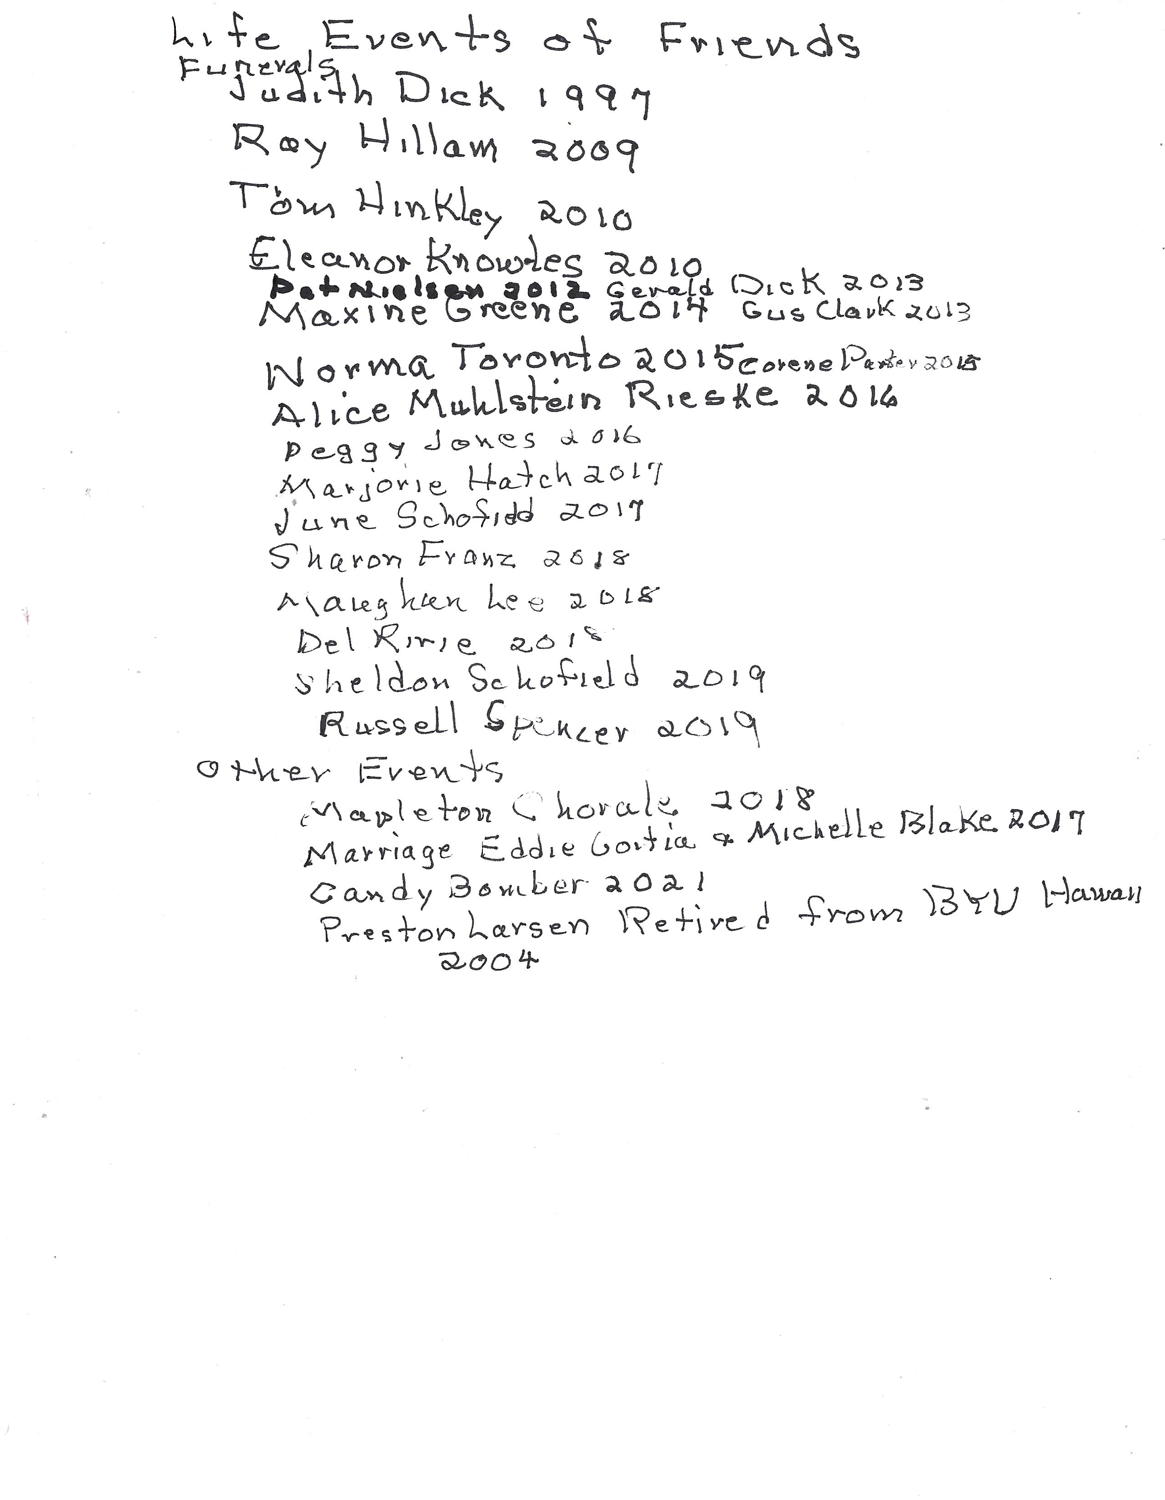 Life Events of Friends
Funerals
Judith Dick 1997
Ray Hillam 2009
Tom Hinkley 2010
Eleanor Knowles 2010
Pat Nielsen 2012 Gerald Dick 2013
Maxine Greene 2014 Gus Clark 2013
Norma Toronto 2015 Corene Parker 2015
Alice Muhlstein Rieske 2016
Peggy Jones 2016
Marjorie Hatch 2017
June Schofield 2017
Sharon Franz 2018
Maughan Lee 2018
Del Ririe 2018
Sheldon Schofield 2019
Russell Spencer 2019
Other Events
Mapleton Chorale 2018
Marriage Eddie Goitia & Michelle Blake 2017
Candy Bomber 2021
Preston Larsen Retired from BYU Hawaii
2004